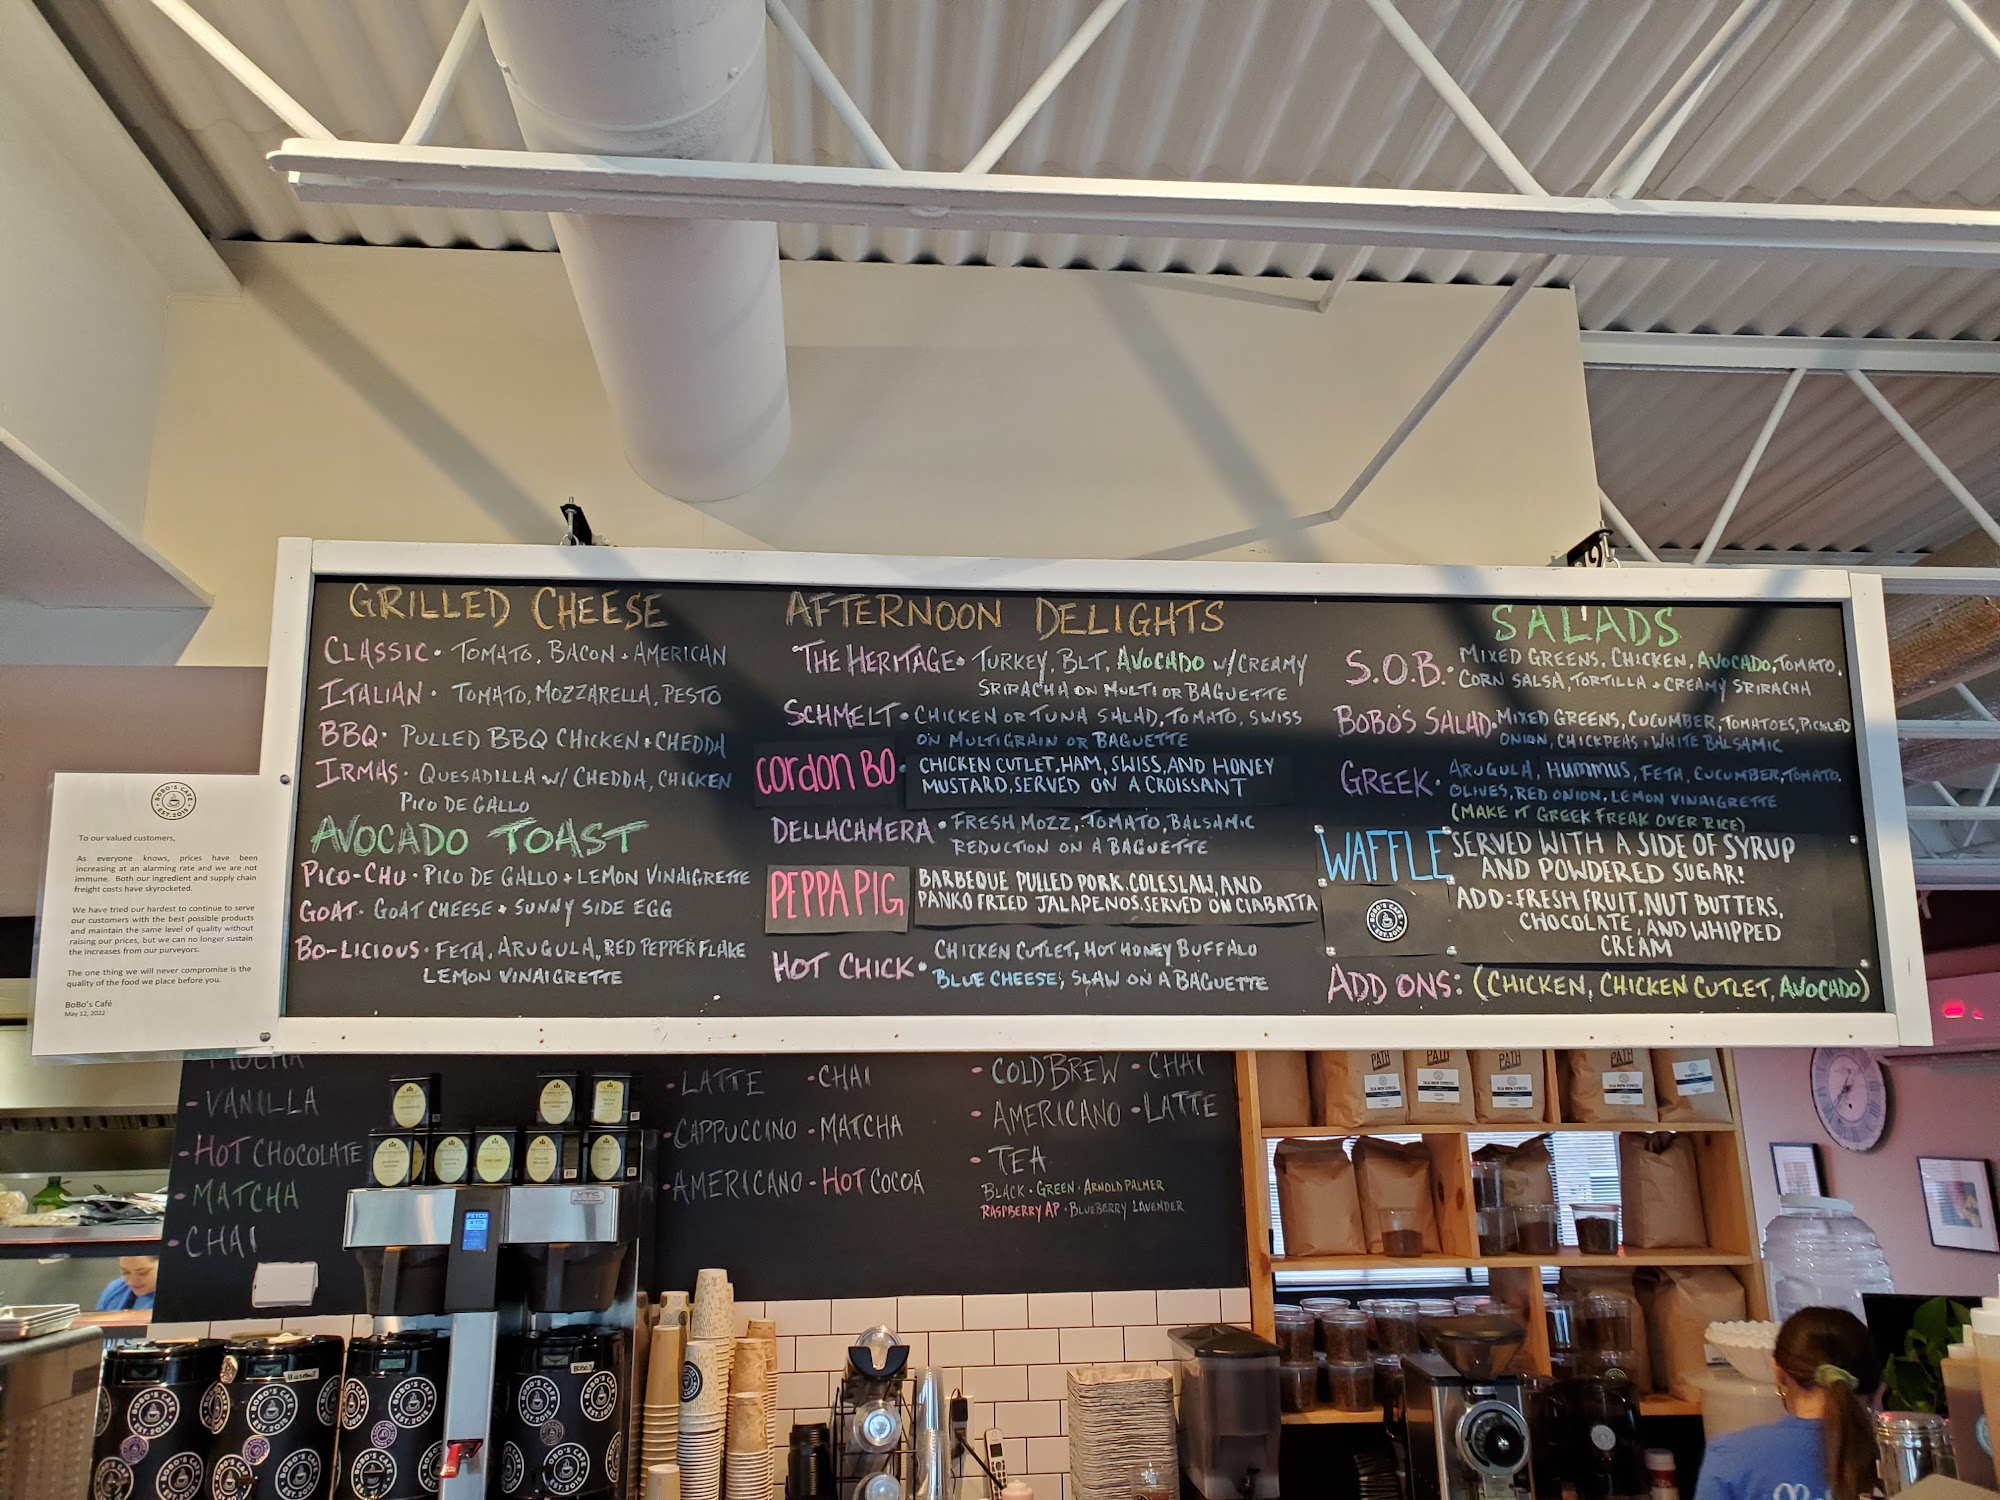 GRILLED CHEESE
CLASSIC • TOMATO, BACON + AMERICAN
ITALIAN • TOMATO, MOZZARELLA, PESTO
BBQ • PULLED BBQ CHICKEN + CHEDDA
IRMAS • QUESADILLA W/ CHEDDA, CHICKEN
PICO DE GALLO
AVOCADO TOAST
PICO-CHU • PICO DE GALLO + LEMON VINAIGRETTE
GOAT • GOAT CHEESE + SUNNY SIDE EGG
BO-LICIOUS • FETA, ARUGULA, RED PEPPER FLAKE
LEMON VINAIGRETTE
AFTERNOON DELIGHTS
THE HERITAGE • TURKEY, BLT, AVOCADO W/CREAMY
SRIRACHA ON MULTI OR BAGUETTE
SCHMELT • CHICKEN OR TUNA SALAD, TOMATO, SWISS
ON MULTIGRAIN OR BAGUETTE
CORDON BO • CHICKEN CUTLET, HAM, SWISS, AND HONEY
MUSTARD, SERVED ON A CROISSANT
DELLACAMERA • FRESH MOZZ, TOMATO, BALSAMIC
REDUCTION ON A BAGUETTE
PEPPA PIG BARBEQUE PULLED PORK, COLESLAW, AND
PANKO FRIED JALAPENOS. SERVED ON CIABATTA
HOT CHICK • CHICKEN CUTLET, HOT HONEY BUFFALO
BLUE CHEESE, SLAW ON A BAGUETTE
SALADS
S.O.B. • MIXED GREENS, CHICKEN, AVOCADO, TOMATO,
CORN SALSA, TORTILLA + CREAMY SRIRACHA
BOBO'S SALAD • MIXED GREENS, CUCUMBER, TOMATOES, PICKLED
ONION, CHICKPEAS + WHITE BALSAMIC
GREEK • ARUGULA, HUMMUS, FETA, CUCUMBER, TOMATO,
OLIVES, RED ONION, LEMON VINAIGRETTE
(MAKE IT GREEK FREAK OVER RICE)
WAFFLE SERVED WITH A SIDE OF SYRUP
AND POWDERED SUGAR!
ADD: FRESH FRUIT, NUT BUTTERS,
CHOCOLATE, AND WHIPPED
CREAM
ADD ONS: (CHICKEN, CHICKEN CUTLET, AVOCADO)
BOBO'S CAFE
EST. 2015
To our valued customers,
As everyone knows, prices have been
increasing at an alarming rate and we are not
immune. Both our ingredient and supply chain
freight costs have skyrocketed.
We have tried our hardest to continue to serve
our customers with the best possible products
and maintain the same level of quality without
raising our prices, but we can no longer sustain
the increases from our purveyors.
The one thing we will never compromise is the
quality of the food we place before you.
BoBo's Café
May 12, 2022
MOCHA
• VANILLA
• HOT CHOCOLATE
• MATCHA
• CHAI
• LATTE • CHAI
• CAPPUCCINO • MATCHA
• AMERICANO • HOT COCOA
• COLD BREW • CHAI
• AMERICANO • LATTE
• TEA
BLACK • GREEN • ARNOLD PALMER
RASPBERRY AP • BLUEBERRY LAVENDER
PATH
PATH
PATH
PATH
XTS
FETCO
XTS
Hazelnut
BOBO'S
BOBO'S CAFE
EST. 2015
BOBO'S CAFE
EST. 2015
BOBO'S CAFE
EST. 2015
BOBO'S CAFE
EST. 2015